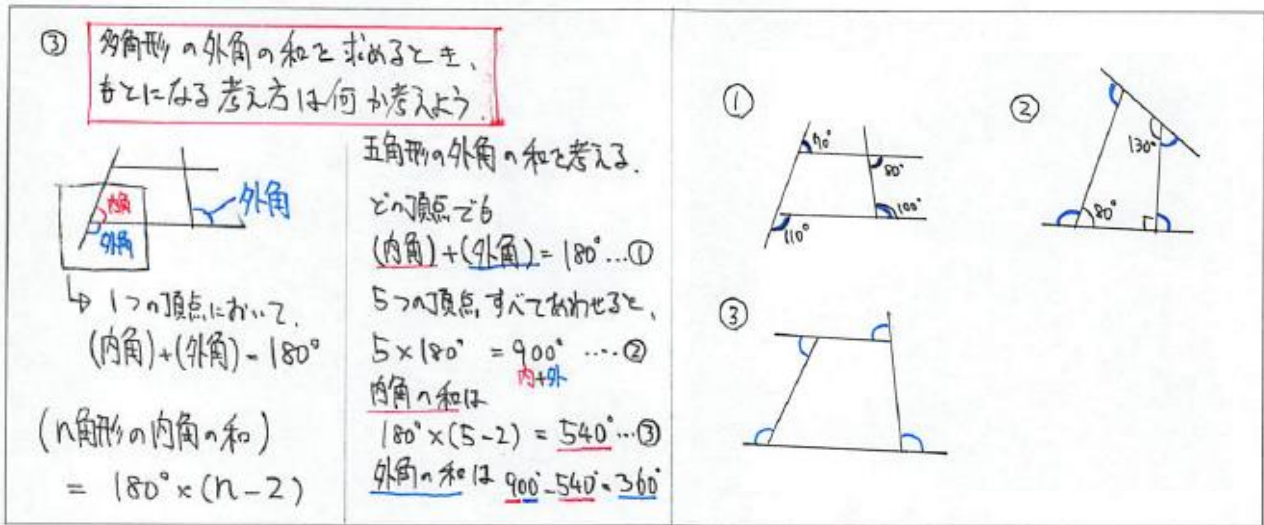 ③
多角形の外角の和を求めるとき、
もとになる考え方は何か考えよう。
内角
外角
外角
↳ 1つの頂点において、
(内角)+(外角)=180°
(n角形の内角の和)
= 180°×(n-2)
五角形の外角の和を考える。
どの頂点でも
(内角)+(外角)=180°…①
5つの頂点すべてあわせると、
5×180°=900°…②
内+外
内角の和は
180°×(5-2)=540°…③
外角の和は 900°-540°=360°
①
70°
80°
100°
110°
②
130°
80°
③